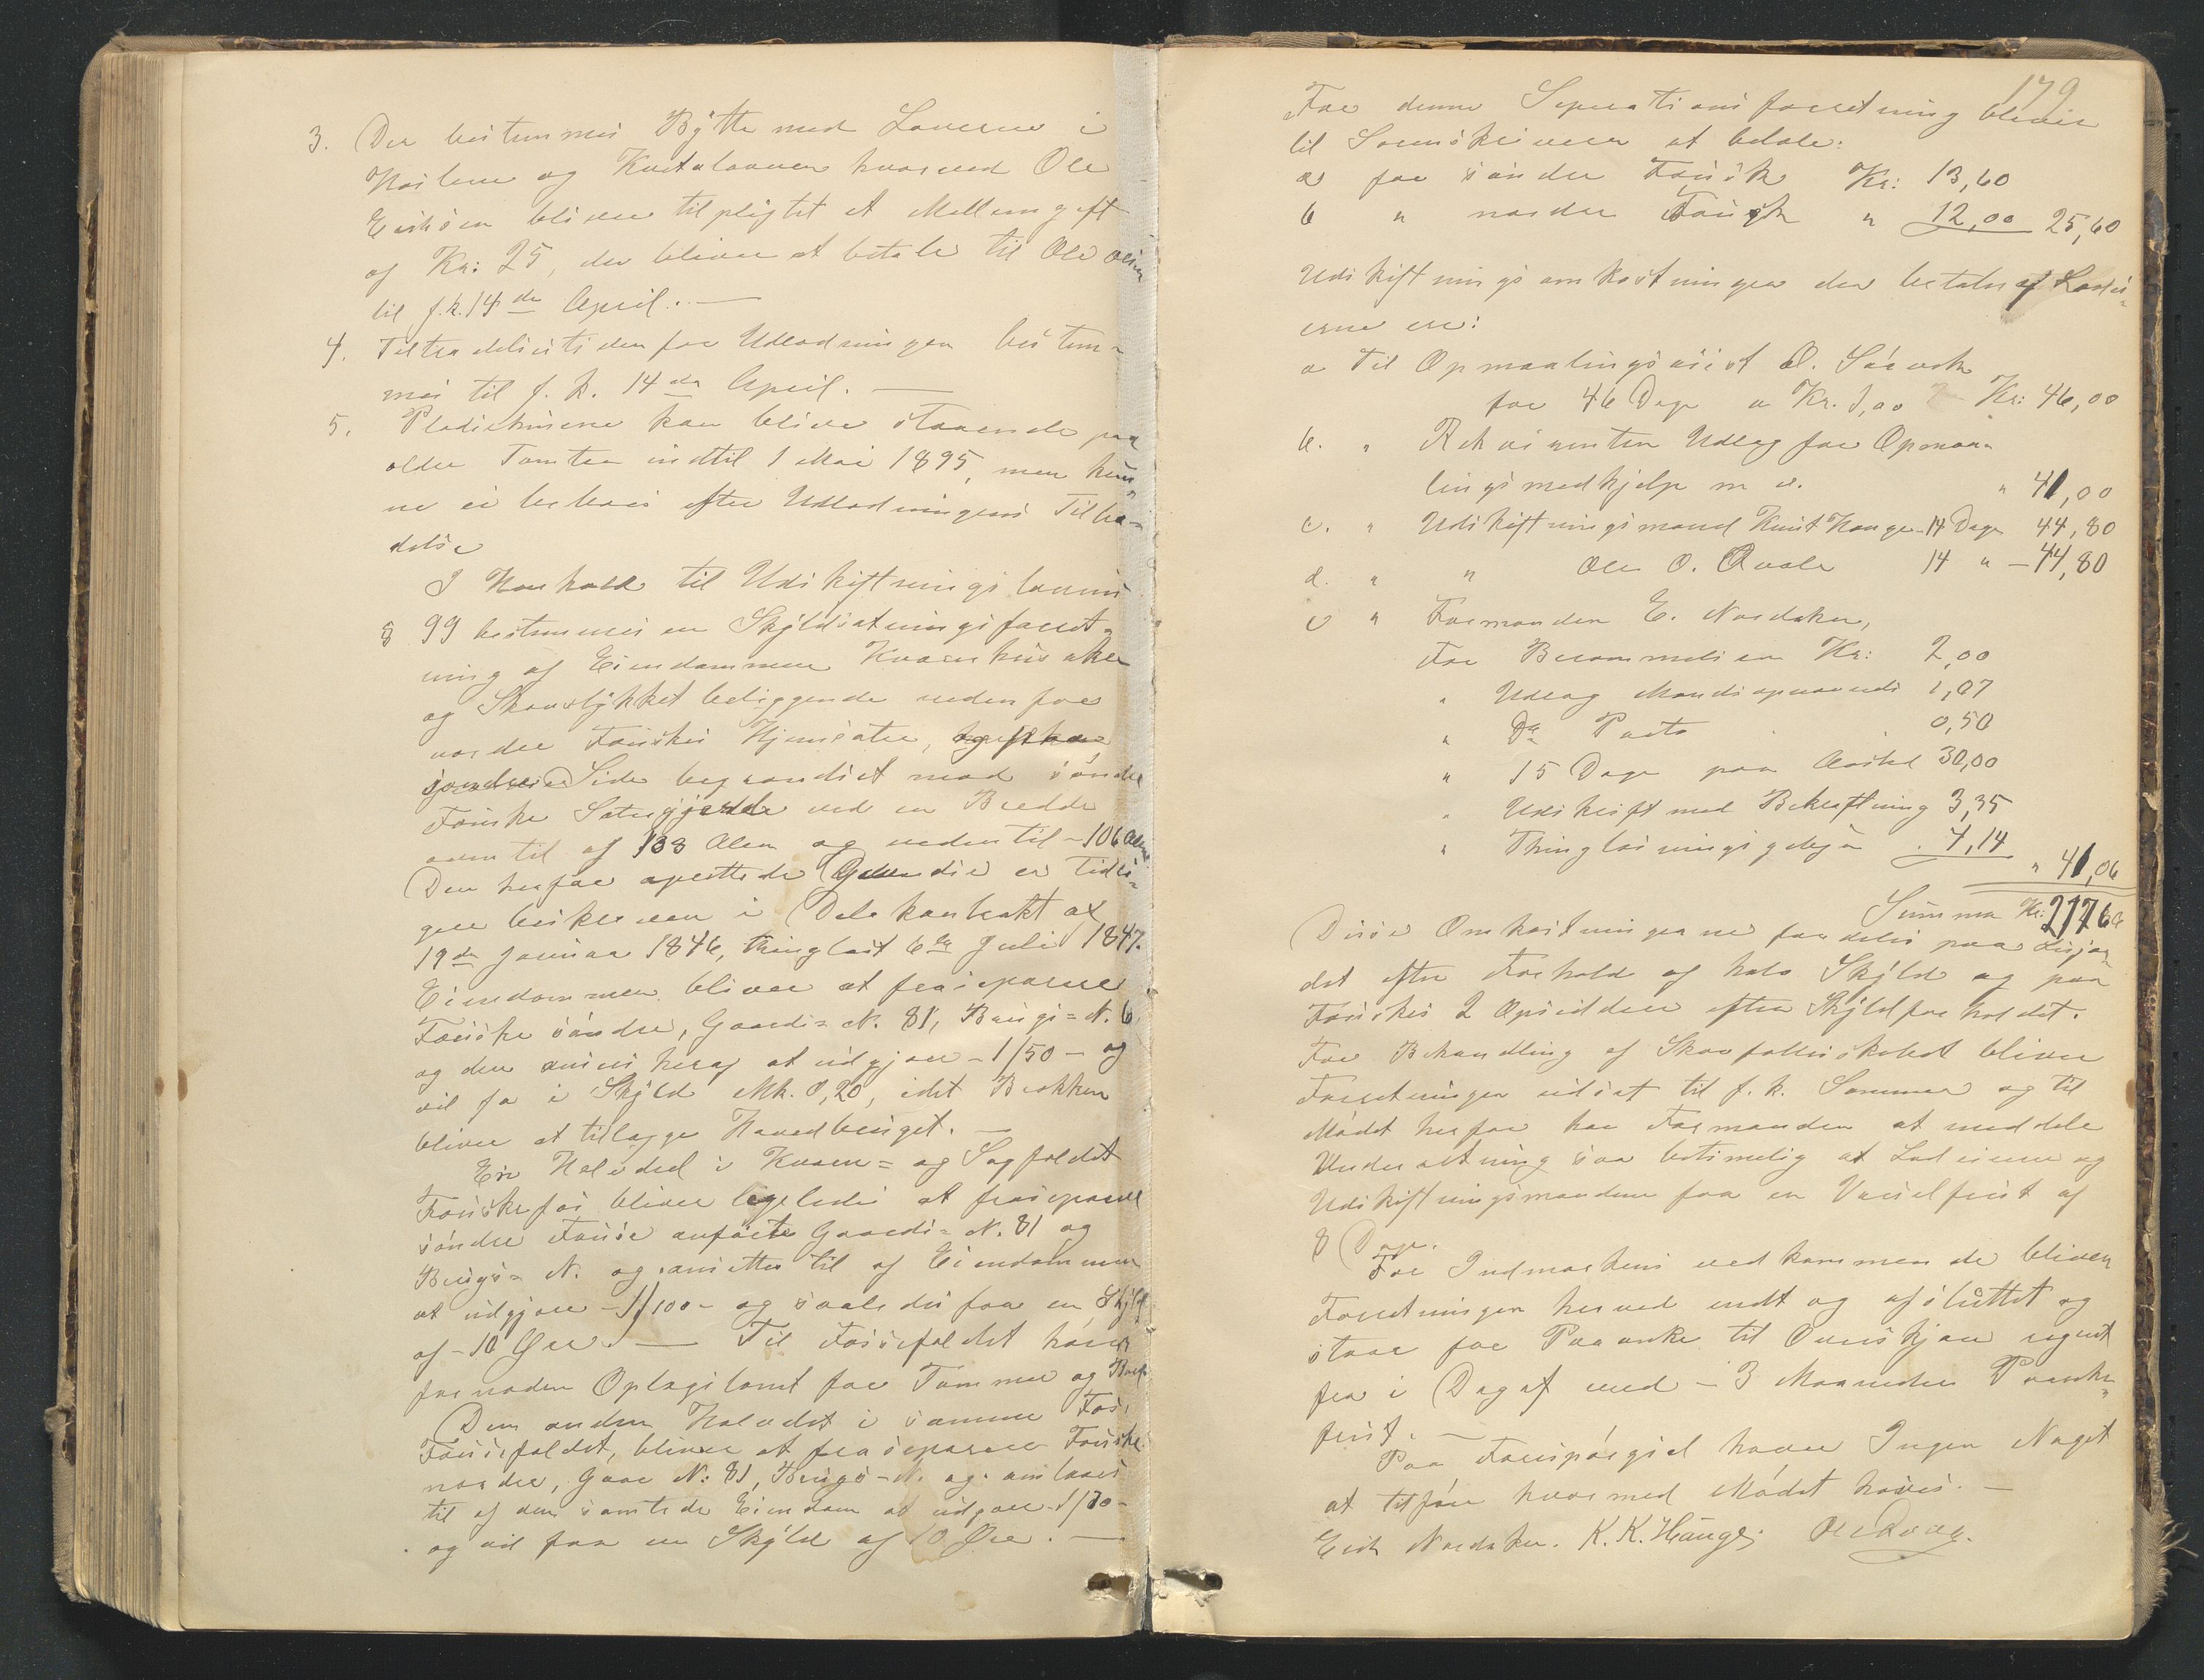 3. Der bestemmes Bytte med Laverne i
Hoslene og Kvitalaaven hvorved Ole
Eriksen bliver tilpligtet et Mellemgift
af Kr: 25, der bliver at betale til Ole Olsen
til f. k. 14de April. —
4. Tiltrædelsestiden for Udlodningen bestem-
mes til f. k. 14de April. —
5. Pladsehusene kan blive staaende paa
ældre Tomter indtil 1 Mai 1895, men kun-
ne ei beboes efter Udlodningens Tiltræ-
delse
I Henhold til Udskiftningslovens
§ 99 bestemmes en Skyldsætningsforret-
ning af Eiendommen Kværnhusaker
og Skovstykket beliggende nedenfor
nordre Fauskes Hjemsæter,
søndre Side begrændset mod søndre
Fauske Sætergjærde ved en Bredde
oventil af 133 Alen og nedentil - 106 Alen
Den herfor oprettede Grændse er tidli-
gere beskreven i Delekontrakt af
19de Januar 1846, thinglæst 6te Juli 1847.
Eiendommen bliver at fraseparere
Fauske søndre, Gaards= N. 81, Brugs= N. 6,
og den ansees heraf at udgjøre - 1/50 - og
vil faa i Skyld Mk. 0,20, idet Brøkken
bliver at tillægge Hovedbruget. —
En Halvdel i Kværn= og Sagfaldet
Fauskefos bliver ligeledes at fraseparere
søndre Fauske anførte Gaards= N. 81 og
Brugs= N. og ansættes til af Eiendommen
at udgjøre - 1/100 - og saaledes faa en Skyld
af - 10 Øre. — Til Fossefaldet hører
fornøden Oplagstomt for Tømmer og
Den anden Halvdel i samme Fos,
Fossefaldet, bliver at fraseparere Fauske
nordre, Gaar N: 81, Brugs= N. og ansees
til af den samlede Eiendom at udgøre - 1/70 -
og vil faa en Skyld af 10 Øre. —
179
For denne Seperationsforretning bliver
til Sorenskriveren at betale:
a for søndre Fausk Kr: 13,60
b " nordre Fausk " 12,00 25,60
Udskiftningsomkostninger der betales af Lods-
erne ere:
a Til Opmaalingsasist O. Sørvik
for 46 Dage a Kr. 1,00 Kr: 46,00
b. " Rekvirenten Udlæg for Opmaa-
lingsmedhjelp m v. " 41,00
c. " Udskiftningsmand Knut Hauge 14 Dage 44,80
d. " " Ole O. Qvale 14 " - 44,80
e " Formanden E. Nordaker,
For Berammelsen Kr: 2,00
" Udlæg Mandsopnævnels 1,07
" Do Porto 0,50
" 15 Dage paa Aastel 30,00
" Udskrift med Bekræftning 3,35
" Thinglæsningsgebyr . 4,14
" 41,06
Summa Kr: 217,66
Disse Omkostningerne fordeles paa
det efter Forhold af halv Skyld og paa
Fauskes 2 Opsiddere efter Skyldforholdet.
For Behandling af Skovfællesskabet bliver
Forretningen udsat til f. k. Sommer og til
Mødet herfor har Formanden at meddele
Underretning saa betimelig at Lodeierne og
Udskiftningsmændene faa en Varselfrist af
8 Dage.
For Indmarkens vedkommende bliver
Forretningen herved endt og afsluttet og
staar for Paaanke til Overskjøn regnet
fra i Dag af med - 3 Maaneders Paaanke-
frist. —
Paa Forespørgsel havde Ingen Noget
at tilføie hvormed Mødet hæves. —
Erik Nordaker. K. K. Hauge. Ole Qvale.